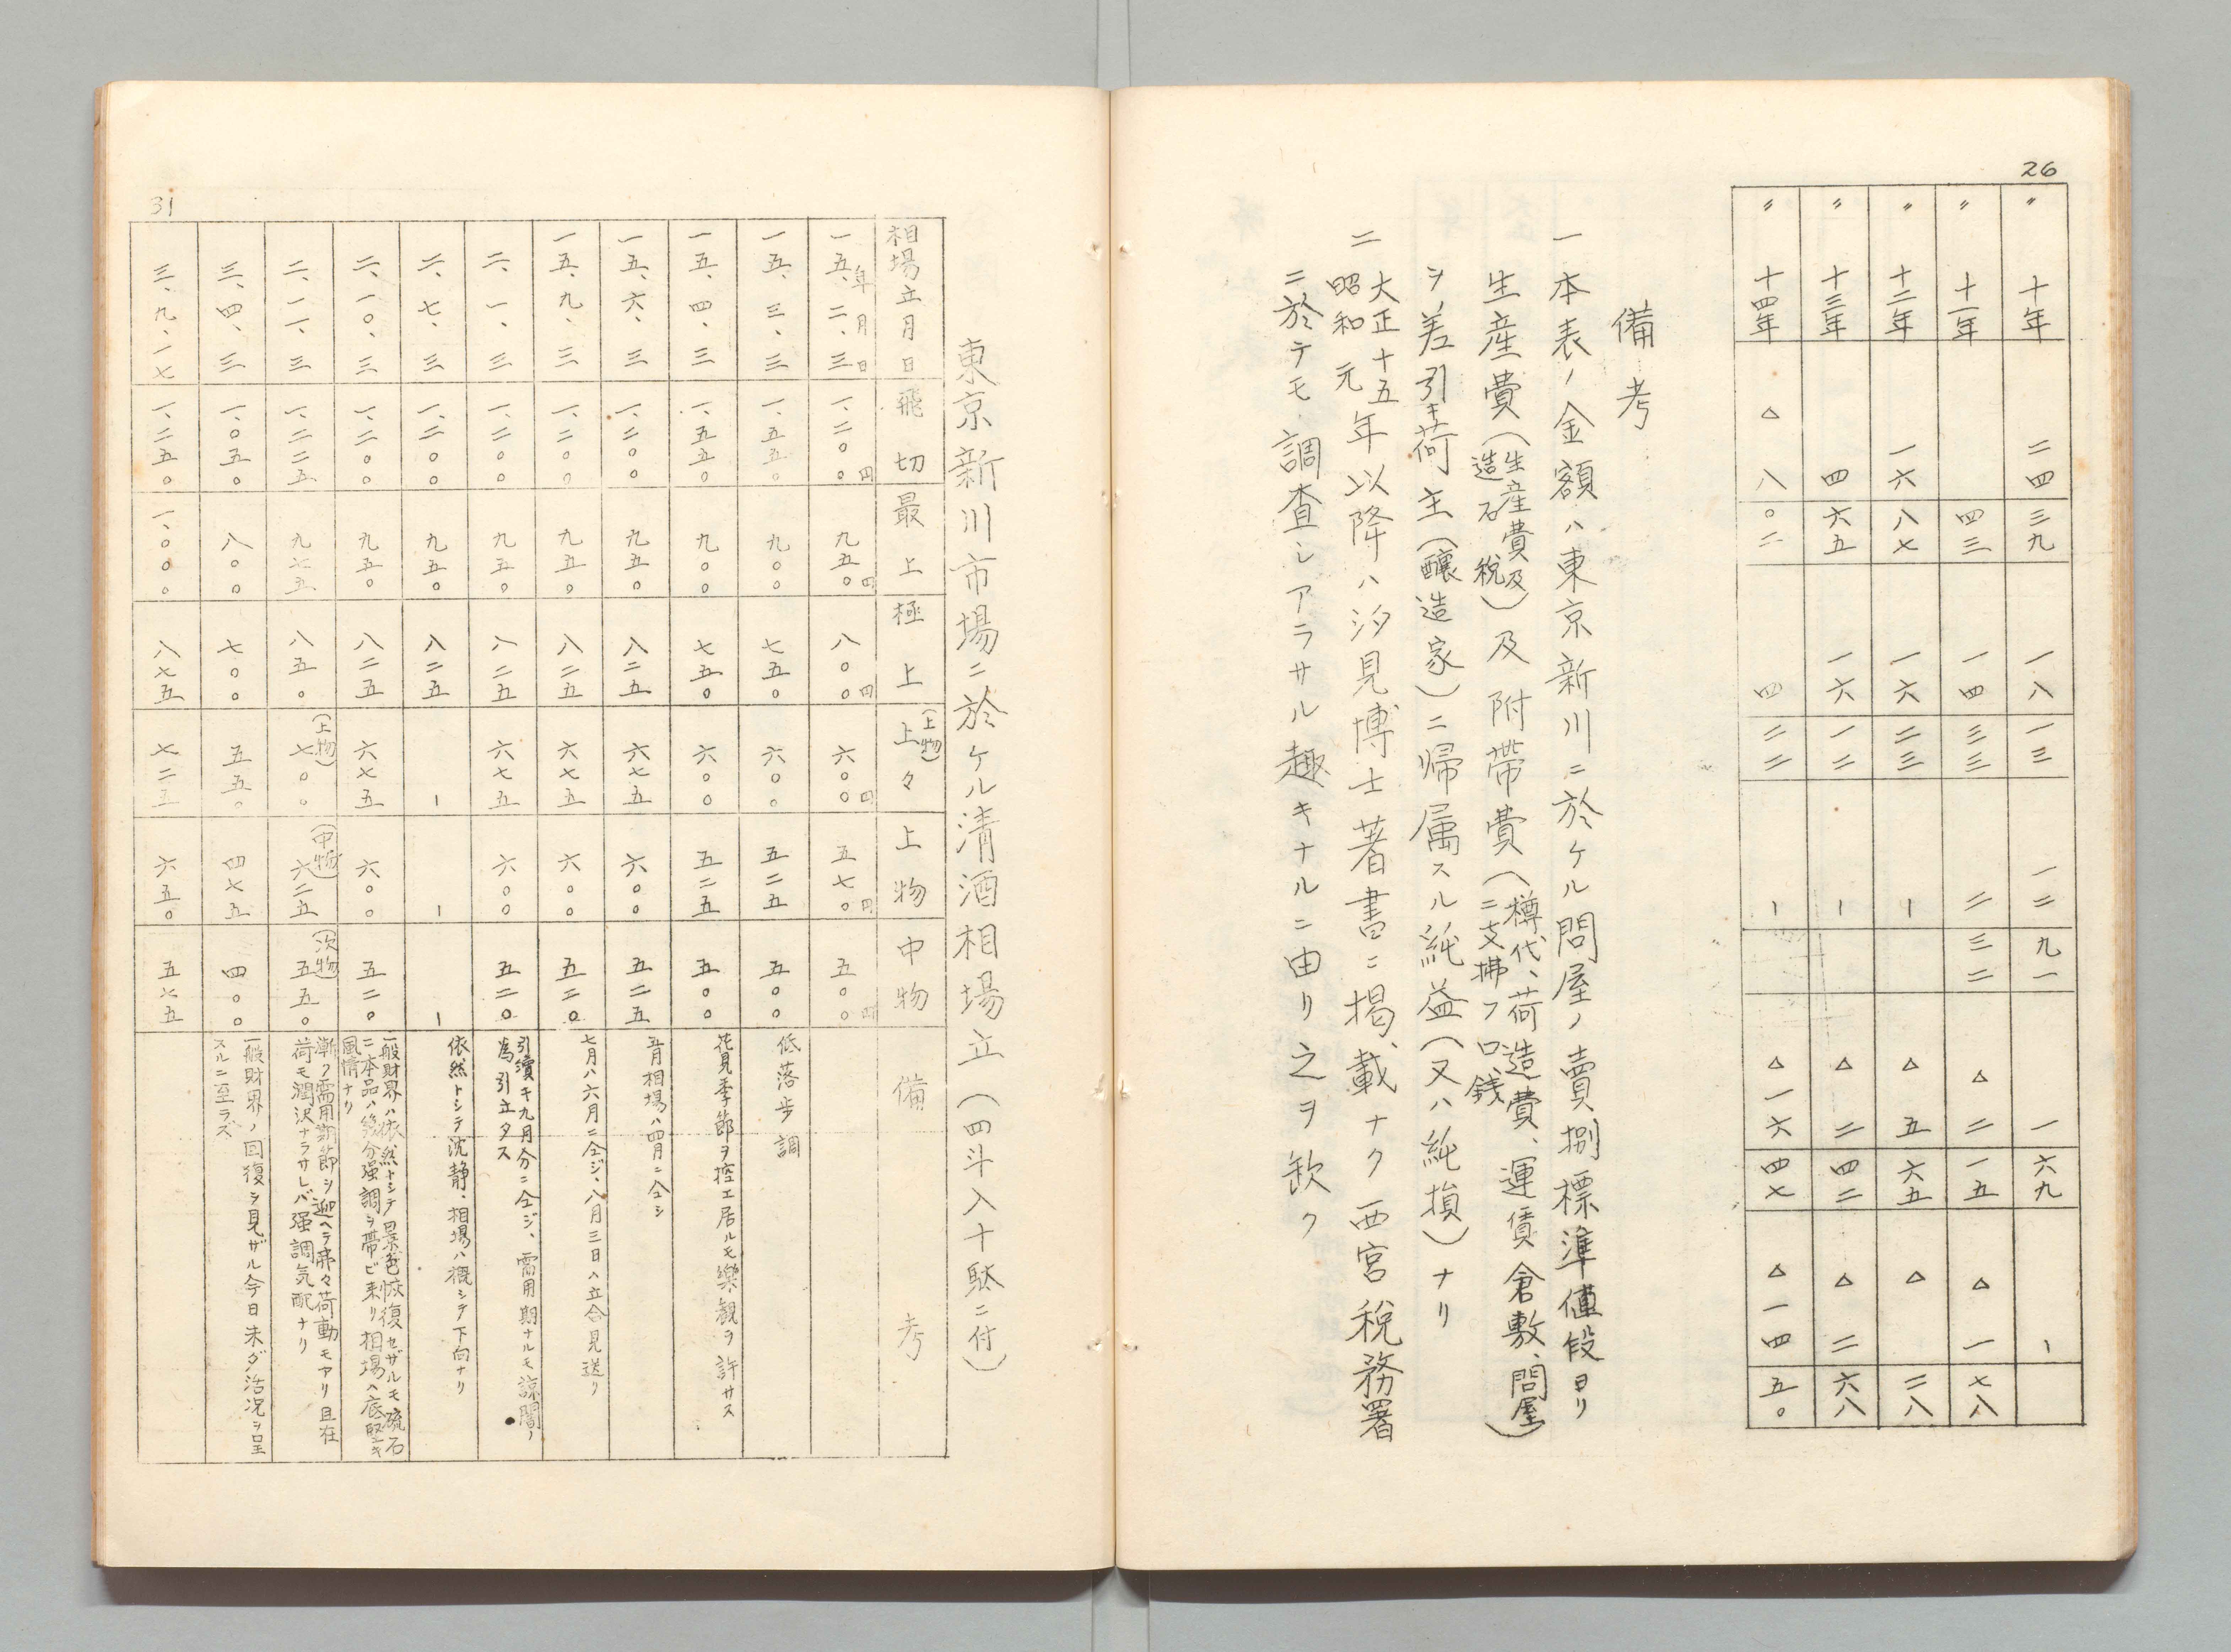 26
〃 十年 二四 三九 一八 一三 一二 九一 一 六九 ー
〃 十一年 四三 一四 三三 二 三二 △二 一五 △一 七八
〃 十二年 一六 八七 一六 二三 ー △五 六五 △ 二八
〃 十三年 四 六五 一六 一二 ー △二 四二 △二 六八
〃 十四年 △八 〇二 四 二二 ー △一六 四七 △一四 五〇
備考
一 本表ノ金額ハ東京新川ニ於ケル問屋ノ賣捌標準値段ヨリ
生産費(生産費及造石税)及附帶費(樽代、荷造費、運賃倉敷、問屋ニ支拂フ口銭)
ヲ差引キ荷主(釀造家)ニ帰属スル純益(又ハ純損)ナリ
二 大正十五昭和元年以降ハ汐見博士著書ニ掲載ナク西宮税務署
ニ於テモ調査シアラサル趣キナルニ由リ之ヲ欽ク
東京新川市場ニ於ケル清酒相場立(四斗入十駄ニ付)
相場立月日 飛切 最上 極上 (上物)上々 上物 中物 備考
一五年、二月、三日 一、二〇〇円 九五〇円 八〇〇円 六〇〇円 五七〇円 五〇〇円
一五、三、三 一、五五〇 九〇〇 七五〇 六〇〇 五二五 五〇〇 低落歩調
一五、四、三 一、五五〇 九〇〇 七五〇 六〇〇 五二五 五〇〇 花見季節ヲ控エ居ルモ樂観ヲ許サス
一五、六、三 一、二〇〇 九五〇 八二五 六七五 六〇〇 五二五 五月相場ハ四月ニ仝シ
一五、九、三 一、二〇〇 九五〇 八二五 六七五 六〇〇 五二〇 七月ハ六月ニ仝ジ、八月三日ハ立合見送リ
二、一、三 一、二〇〇 九五〇 八二五 六七五 六〇〇 五二〇 引續キ九月分ニ仝ジ、需用期ナルモ諒闇ノ
為引立タス
二、七、三 一、二〇〇 九五〇 八二五 ー ー ー 依然トシテ沈静、相場ハ概シテ下向ナリ
二、一〇、三 一、二〇〇 九五〇 八二五 六七五 六〇〇 五二〇 一般財界ハ依然トシテ景色恢復セザルモ硫石
ニ本品ハ幾分强調ヲ帶ビ来リ相場ハ底堅キ
風情ナリ
二、一一、三 一、二二五 九七五 八五〇 (上物)七〇〇 (中物)六二五 (次物)五五〇 漸ク需用期節ヲ迎ヘラ弗々荷動モアリ且在
荷モ潤沢ナラサレバ强調気配ナリ
三、四、三 一、〇五〇 八〇〇 七〇〇 五五〇 四七五 四〇〇 一般財界ノ回復ヲ見ザル今日未ダ活況ヲ呈
スルニ至ラズ
三、九、一七 一、二五〇 一、〇〇〇 八七五 七二五 六五〇 五七五
31